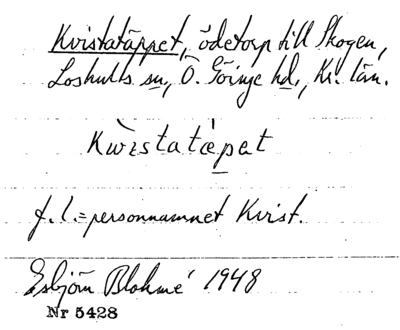 Kvistatäppet, ödetorp till Skogen,
Loshults sn, Ö. Göinge hd., Kr. län.
Kwistatäpet
f.l. = personnamnet Kvist.
Esbjörn Blohmé 1948
Nr 5428